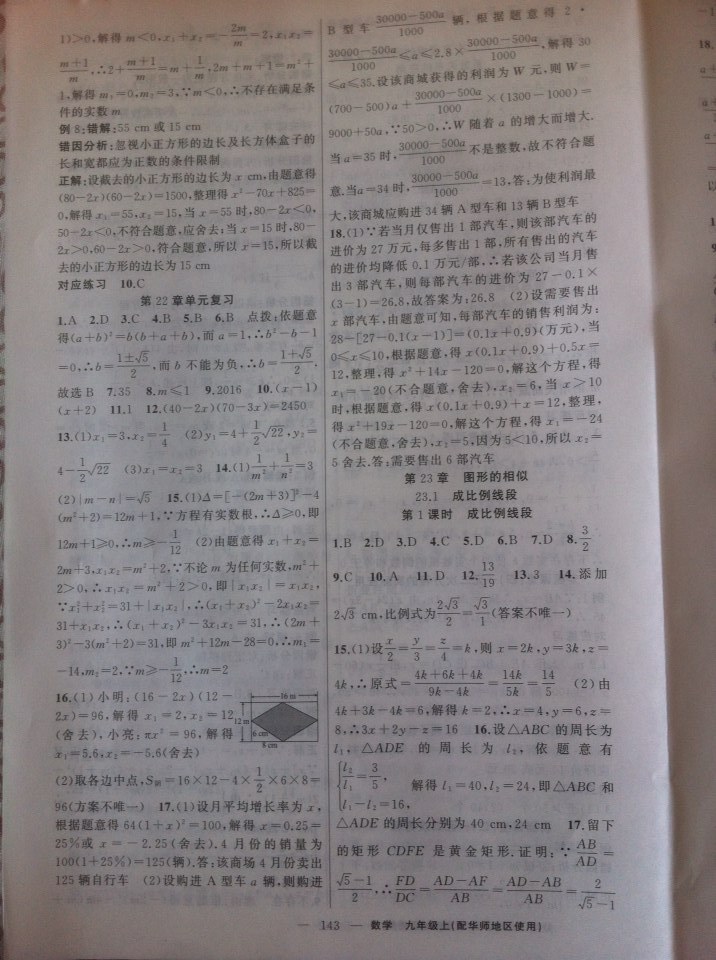 1)>0,解得 m<0,x₁+x₂=-2m/m=2,x₁x₂=
(m+1)/m,∴2+(m+1)/m=m+1/m,2m+m+1=m²+
1,解得 m₁=0,m₂=3,∵m<0,∴不存在满足条
件的实数 m
例 8:错解:55 cm 或 15 cm
错因分析:忽视小正方形的边长及长方体盒子的
长和宽都应为正数的条件限制
正解:设截去的小正方形的边长为 x cm,由题意得
(80-2x)(60-2x)=1500,整理得 x²-70x+825=
0,解得 x₁=55,x₂=15,当 x=55 时,80-2x<0,
50-2x<0,不符合题意,应舍去;当 x=15 时,80-
2x>0,60-2x>0,符合题意,所以 x=15,所以截
去的小正方形的边长为 15 cm
对应练习 10.C
第 22 章单元复习
1.A 2.D 3.C 4.B 5.B 6.B 点拨:依题意
得(a+b)²=b(b+a+b),而 a=1,∴b²-b-1
=0,∴b=(1±√5)/2,而 b 不能为负,∴b=(1+√5)/2.
故选 B 7.35 8.m≤1 9.2016 10.(x-1)
(x+2) 11.1 12.(40-2x)(70-3x)=2450
13.(1)x₁=3,x₂=1/4 (2)y₁=4+1/2√22,y₂=
4-1/2√22 (3)x₁=x₂=3 14.(1)1/m²+1/n²=3
(2)|m-n|=√5 15.(1)Δ=[-(2m+3)]²-4
(m²+2)=12m+1,∵方程有实数根,∴Δ≥0,即
12m+1≥0,∴m≥-1/12 (2)由题意得 x₁+x₂=
2m+3,x₁x₂=m²+2,∵不论 m 为任何实数,m²+
2>0,∴x₁x₂=m²+2>0,即|x₁x₂|=x₁x₂,
∵x₁²+x₂²=31+|x₁x₂|,∴(x₁+x₂)²-2x₁x₂=
31+x₁x₂,∴(x₁+x₂)²-3x₁x₂=31,∴(2m+
3)²-3(m²+2)=31,即 m²+12m-28=0,∴m₁=
-14,m₂=2,∵m≥-1/12,∴m=2
16.(1)小明:(16-2x)(12-
2x)=96,解得 x₁=2,x₂=12
(舍去),小亮:πx²=96,解得
x₁=5.6,x₂=-5.6(舍去)
16 m
12 m
6 cm
8 cm
(2)取各边中点,S=16×12-4×1/2×6×8=
96(方案不唯一) 17.(1)设月平均增长率为 x,
根据题意得 64(1+x)²=100,解得 x=0.25=
25%或 x=-2.25(舍去).4 月份的销量为
100(1+25%)=125(辆).答:该商场 4 月份卖出
125 辆自行车 (2)设购进 A 型车 a 辆,则购进
B 型车(30000-500a)/1000 辆,根据题意得 2·
(30000-500a)/1000≤a≤2.8×(30000-500a)/1000,解得 30
≤a≤35.设该商城获得的利润为 W 元,则 W=
(700-500)a+(30000-500a)/1000×(1300-1000)=
9000+50a,∵50>0,∴W 随着 a 的增大而增大.
当 a=35 时,(30000-500a)/1000 不是整数,故不符合题
意.当a=34 时,(30000-500a)/1000=13,答:为使利润最
大,该商城应购进 34 辆 A 型车和 13 辆 B 型车
18.(1)∵若当月仅售出 1 部汽车,则该部汽车的
进价为 27 万元,每多售出 1 部,所有售出的汽车
的进价均降低 0.1 万元/部,∴若该公司当月售
出 3 部汽车,则每部汽车的进价为 27-0.1×
(3-1)=26.8,故答案为:26.8 (2)设需要售出
x 部汽车,由题意可知,每部汽车的销售利润为:
28-[27-0.1(x-1)]=(0.1x+0.9)(万元),当
0≤x≤10,根据题意,得 x(0.1x+0.9)+0.5x=
12,整理,得 x²+14x-120=0,解这个方程,得
x₁=-20(不合题意,舍去),x₂=6,当 x>10
时,根据题意,得 x(0.1x+0.9)+x=12,整理,
得 x²+19x-120=0,解这个方程,得 x₁=-24
(不合题意,舍去),x₂=5,因为5<10,所以 x₂=
5 舍去.答:需要售出 6 部汽车
第 23 章 图形的相似
23.1 成比例线段
第 1 课时 成比例线段
1.B 2.D 3.D 4.C 5.D 6.B 7.D 8.3/2
9.C 10.A 11.D 12.13/19 13.3 14.添加
2√3 cm,比例式为(2√3)/2=√3/1(答案不唯一)
15.(1)设x/2=y/3=z/4=k,则 x=2k,y=3k,z=
4k,∴原式=(4k+6k+4k)/(9k-4k)=14k/5k=14/5 (2)由
4k+3k-4k=6,解得 k=2,∴x=4,y=6,z=
8,∴3x+2y-z=16 16.设△ABC 的周长为
l₁,△ADE 的周长为 l₂,依题意有
{l₂/l₁=3/5,
l₁-l₂=16, 解得 l₁=40,l₂=24,即△ABC 和
△ADE 的周长分别为 40 cm,24 cm 17.留下
的矩形 CDFE 是黄金矩形.证明:∵AB/AD=
(√5-1)/2,∴FD/DC=(AD-AF)/AB=(AD-AB)/AB=2/(√5-1)
— 143 — 数学 九年级上(配华师地区使用)